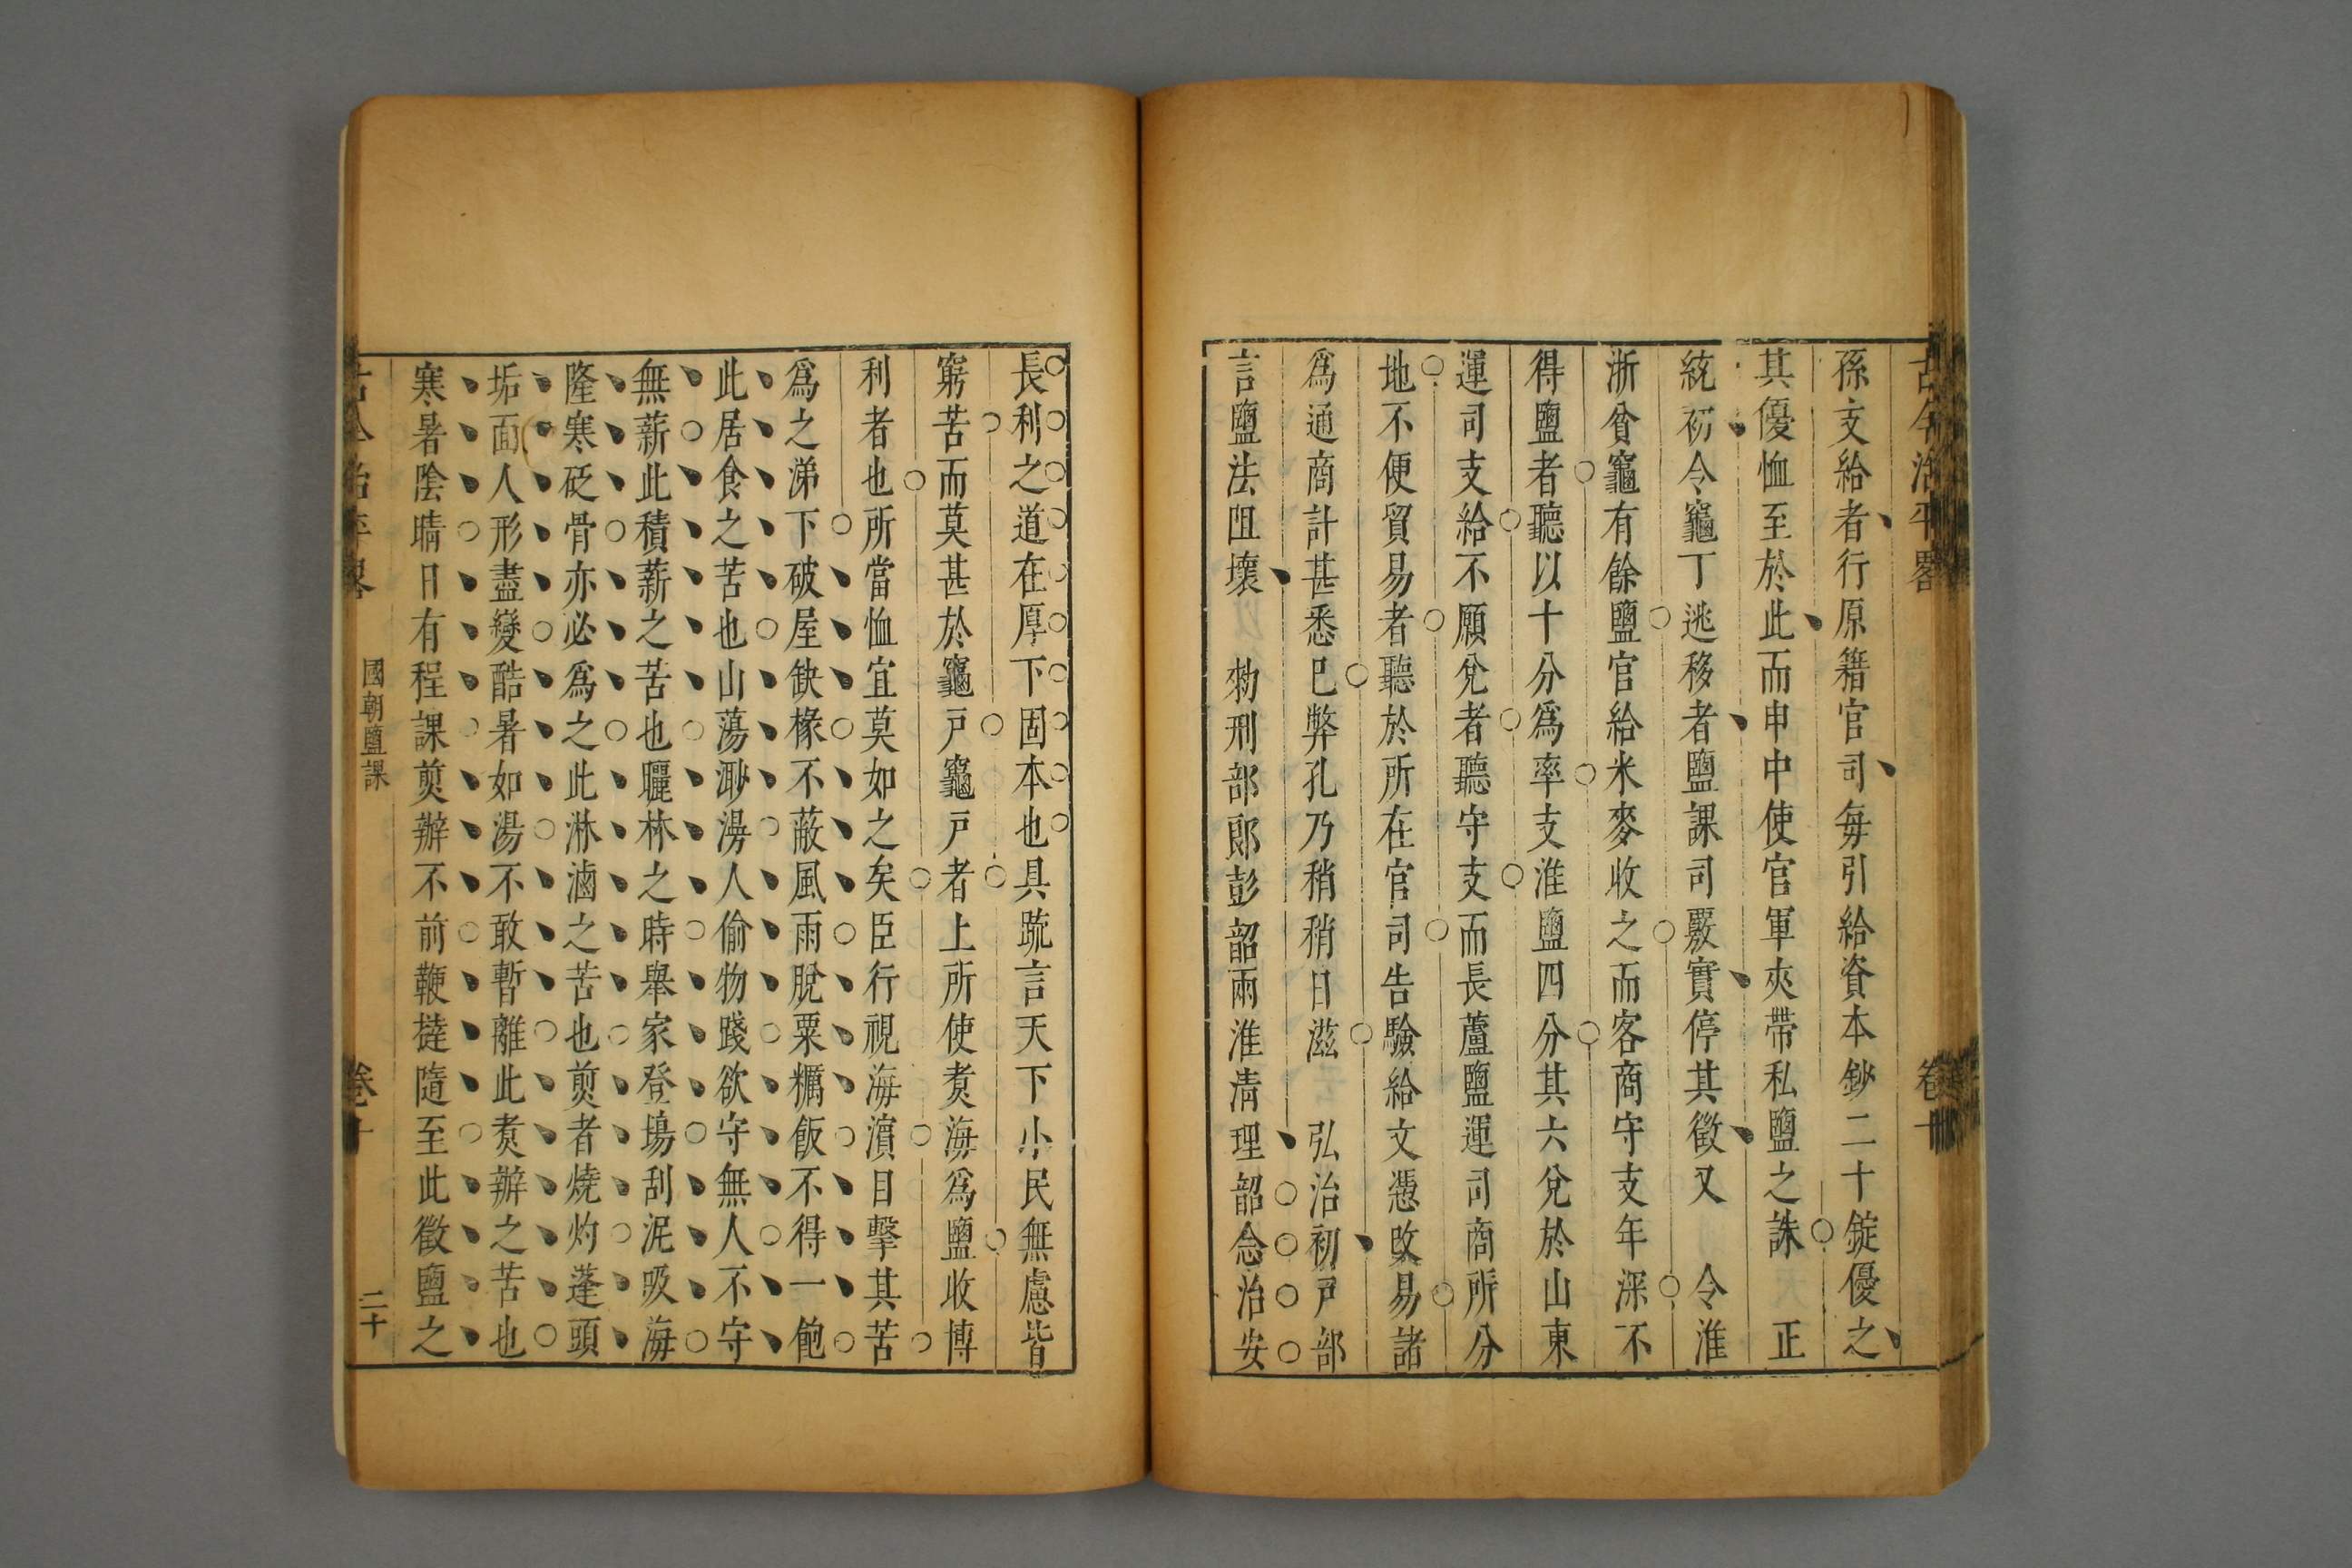 古今治平畧 卷十
孫支給者行原籍官司每引給資本鈔二十錠優之
其優恤至於此而申中使官軍夾帶私鹽之誅 正
統初令竈丁逃移者鹽課司覈實停其徵又 令淮
浙貧竈有餘鹽官給米麥收之而客商守支年深不
得鹽者聽以十分爲率支淮鹽四分其六兌於山東
運司支給不願兌者聽守支而長蘆鹽運司商所分
地不便貿易者聽於所在官司告驗給文憑改易諸
爲通商計甚悉巳弊孔乃稍稍日滋 弘治初戸部
言鹽法阻壞 勑刑部郎彭韶兩淮清理韶念治安
長利之道在厚下固本也具疏言天下小民無慮皆
窮苦而莫甚於竈戸竈戸者上所使煑海爲鹽收博
利者也所當恤宜莫如之矣臣行視海濵目擊其苦
爲之涕下破屋缺椽不蔽風雨脫粟糲飯不得一飽
此居食之苦也山蕩渺漭人偷物踐欲守無人不守
無薪此積薪之苦也曬淋之時舉家登塲刮泥吸海
隆寒砭骨亦必爲之此淋滷之苦也煎者燒灼蓬頭
垢面人形盡變酷暑如湯不敢暫離此煑辦之苦也
寒暑陰晴日有程課煎辦不前鞭撻隨至此徵鹽之
古今治平畧 國朝鹽課 卷十 二十